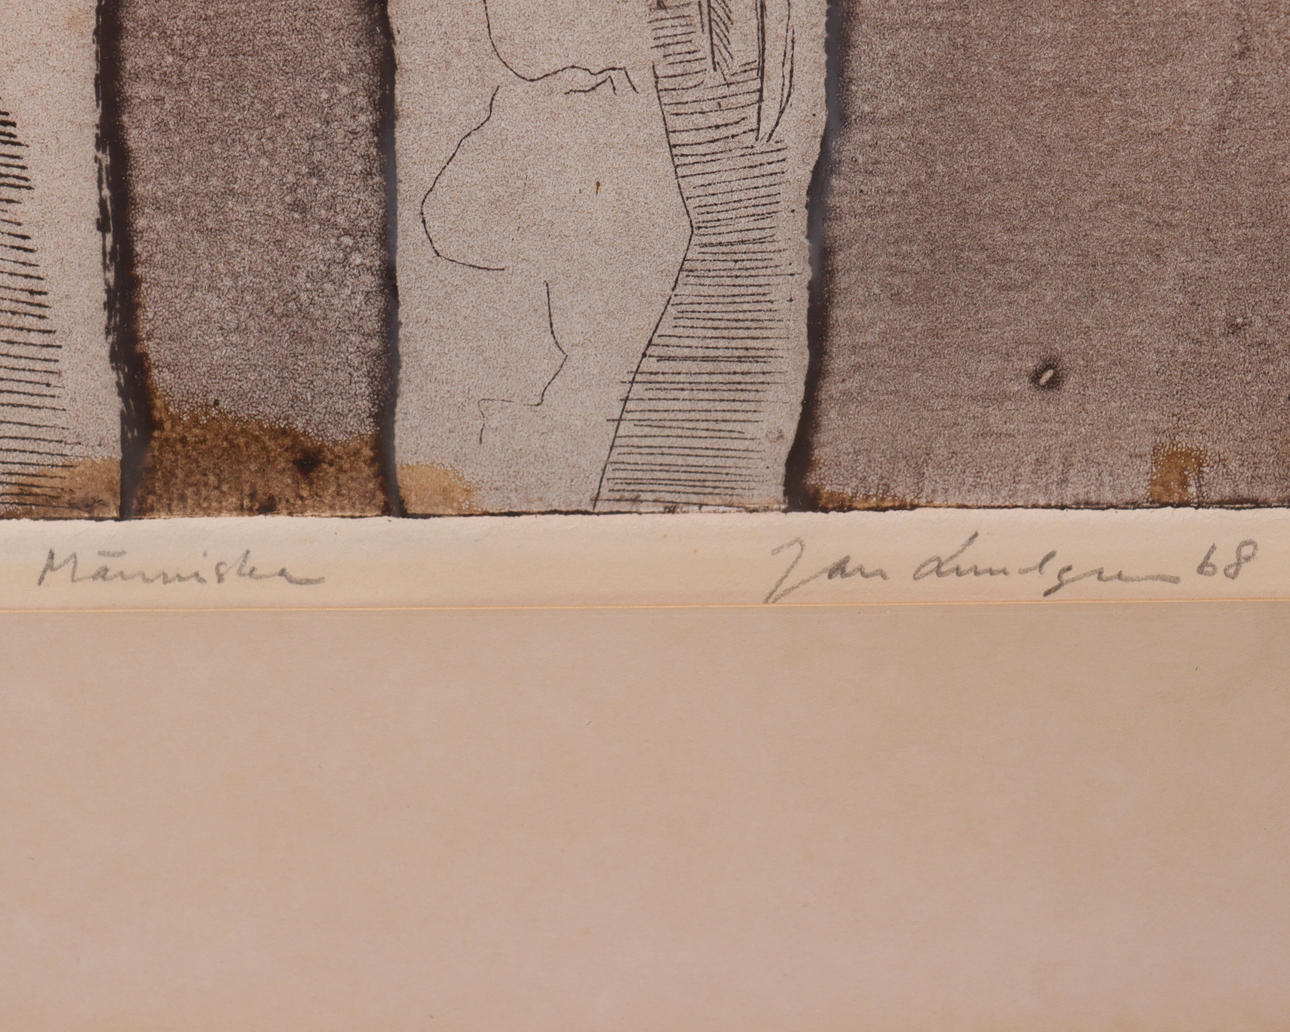 Människa
Jan Lundgren 68